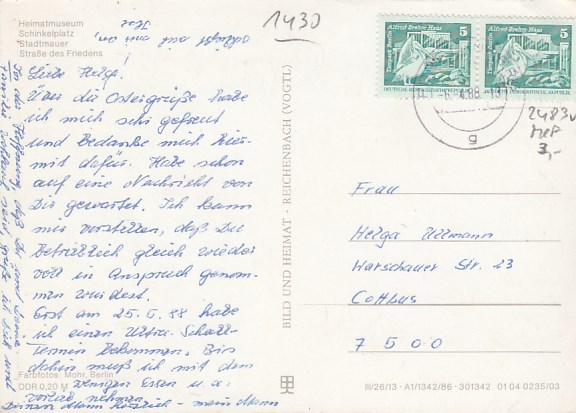 1430
Heimatmuseum
Schinkelplatz
Stadtmauer
Straße des Friedens
Liebe Helga.
Über die Ostergrüße habe
ich mich sehr gefreut
und Bedanke mich hier-
mit dafür. Habe schon
auf eine Nachricht von
Dir gewartet. Ich kann
mir vorstellen, daß Du
Beträchtlich gleich wieder
voll in Anspruch genom-
men wurdest.
Erst am 25.5.88 habe
ich einen Ultra-Schall-
termin Bekommen. Bis
dahin muß ich mit dem
wenigen Essen u.a.
vorlieb nehmen.
Deinen Mann herzlich - mein Mann
In der Hoffnung, daß Du und Deine
Familie wohlauf sind grüße ich Dich und
Farbfotos: Mohr, Berlin
DDR 0,20 M
BILD UND HEIMAT · REICHENBACH (VOGTL)
Alfred-Brehm-Haus
Tierpark Berlin
5
DEUTSCHE DEMOKRATISCHE REPUBLIK
Alfred-Brehm-Haus
Tierpark Berlin
5
DEUTSCHE DEMOKRATISCHE REPUBLIK
-6.-4.88
g
2483v
3,-
Frau
Helga Ullmann
Warschauer Str. 23
Cottbus
7500
III/26/13 · A1/1342/86 · 301342 01 04 0235/03